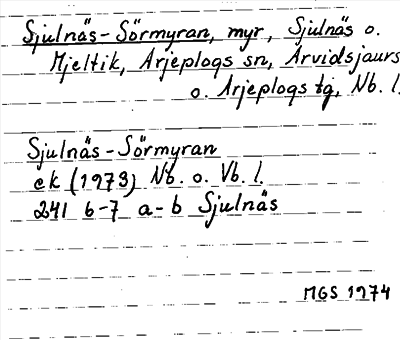 Sjulnäs-Sörmyran, myr, Sjulnäs o.
Mjeltik, Arjeplogs sn, Arvidsjaurs
o. Arjeplogs tg, Nb. l.
Sjulnäs-Sörmyran
ek (1973) Nb. o. Vb. l.
241 6-7 a-b Sjulnäs
MGS 1974